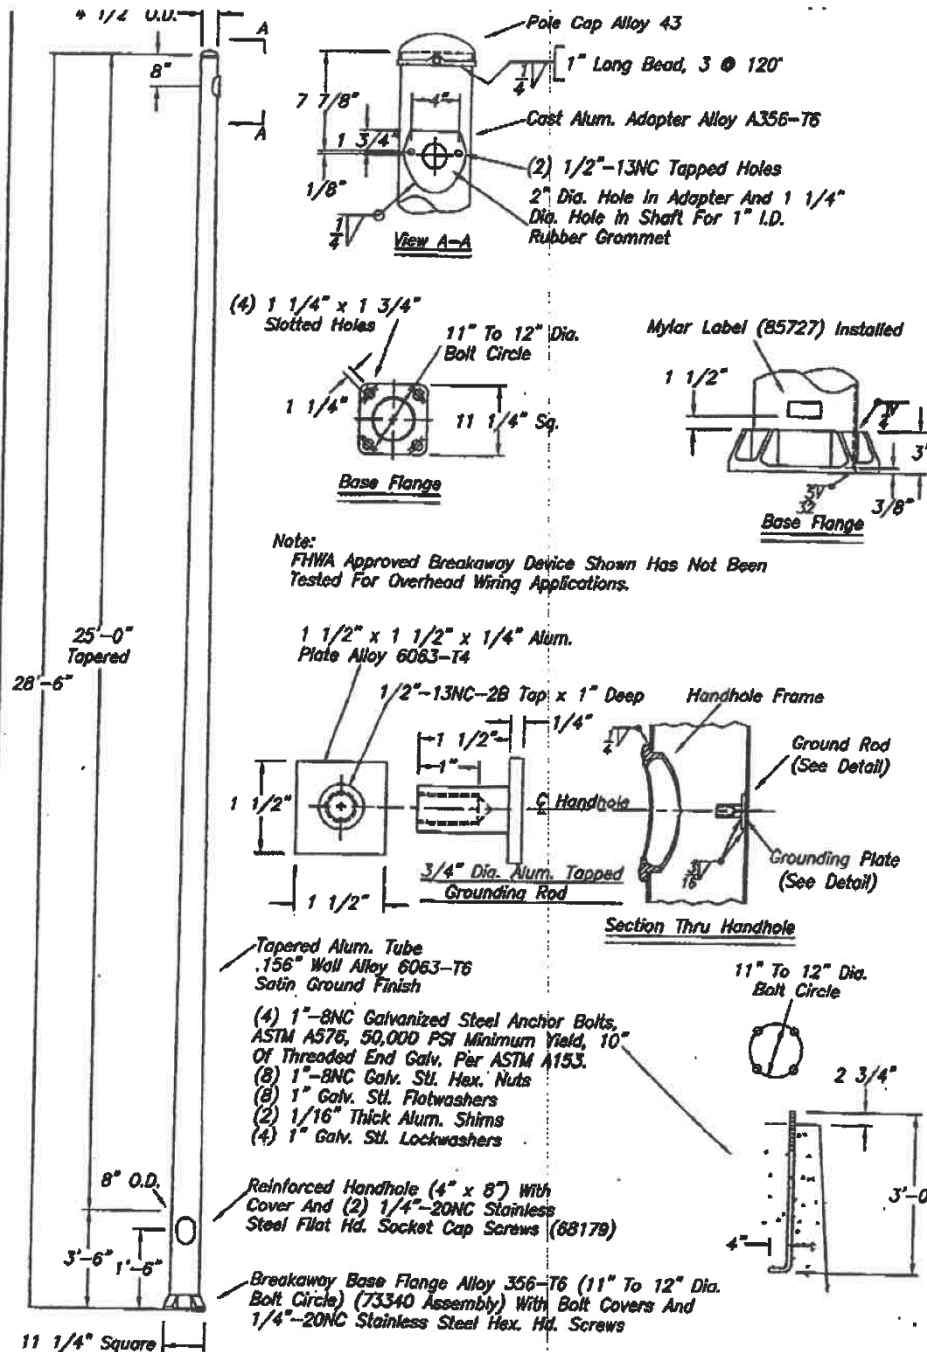 4 1/2" O.D.
A
8"
A
Pole Cap Alloy 43
1/4
1" Long Bead, 3 @ 120°
7 7/8"
4"
1 3/4"
Cast Alum. Adapter Alloy A356-T6
(2) 1/2"-13NC Tapped Holes
1/8"
2" Dia. Hole In Adapter And 1 1/4"
Dia. Hole In Shaft For 1" I.D.
Rubber Grommet
1/4
View A-A
(4) 1 1/4" x 1 3/4"
Slotted Holes
11" To 12" Dia.
Bolt Circle
1 1/4"
11 1/4" Sq.
Base Flange
Mylar Label (85727) Installed
1 1/2"
1/4
3"
3/8"
5/32
Base Flange
Note:
FHWA Approved Breakaway Device Shown Has Not Been
Tested For Overhead Wiring Applications.
25'-0"
Tapered
28'-6"
1 1/2" x 1 1/2" x 1/4" Alum.
Plate Alloy 6063-T4
1/2"-13NC-2B Tap x 1" Deep
1/4"
1 1/2"
1"
1 1/2"
1 1/2"
3/4" Dia. Alum. Tapped
Grounding Rod
Handhole Frame
1/4
Ground Rod
(See Detail)
℄ Handhole
3/16
Grounding Plate
(See Detail)
Section Thru Handhole
Tapered Alum. Tube
.156" Wall Alloy 6063-T6
Satin Ground Finish
(4) 1"-8NC Galvanized Steel Anchor Bolts,
ASTM A576, 50,000 PSI Minimum Yield, 10"
Of Threaded End Galv. Per ASTM A153.
(8) 1"-8NC Galv. Stl. Hex. Nuts
(8) 1" Galv. Stl. Flatwashers
(2) 1/16" Thick Alum. Shims
(4) 1" Galv. Stl. Lockwashers
11" To 12" Dia.
Bolt Circle
2 3/4"
3'-0
4"
8" O.D.
Reinforced Handhole (4" x 8") With
Cover And (2) 1/4"-20NC Stainless
Steel Flat Hd. Socket Cap Screws (68179)
3'-6"
1'-6"
Breakaway Base Flange Alloy 356-T6 (11" To 12" Dia.
Bolt Circle) (73340 Assembly) With Bolt Covers And
1/4"-20NC Stainless Steel Hex. Hd. Screws
11 1/4" Square